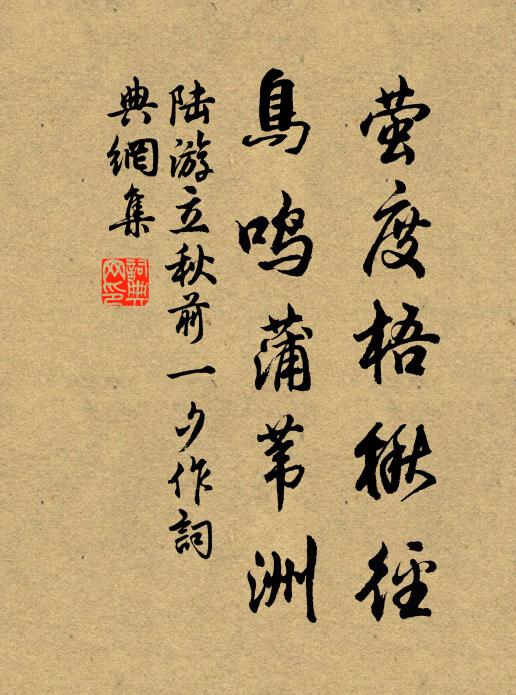 萤度梧楸径
鳥鸣蒲苇洲
陆游立秋前一夕作詞
典網集
詞典
网印